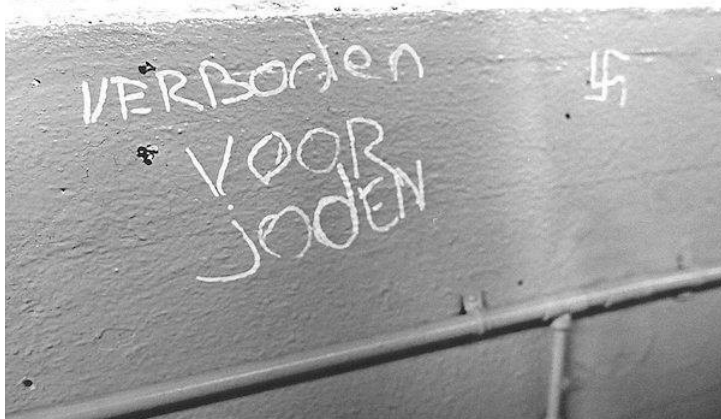 VERBorden
VOOR
jodEN